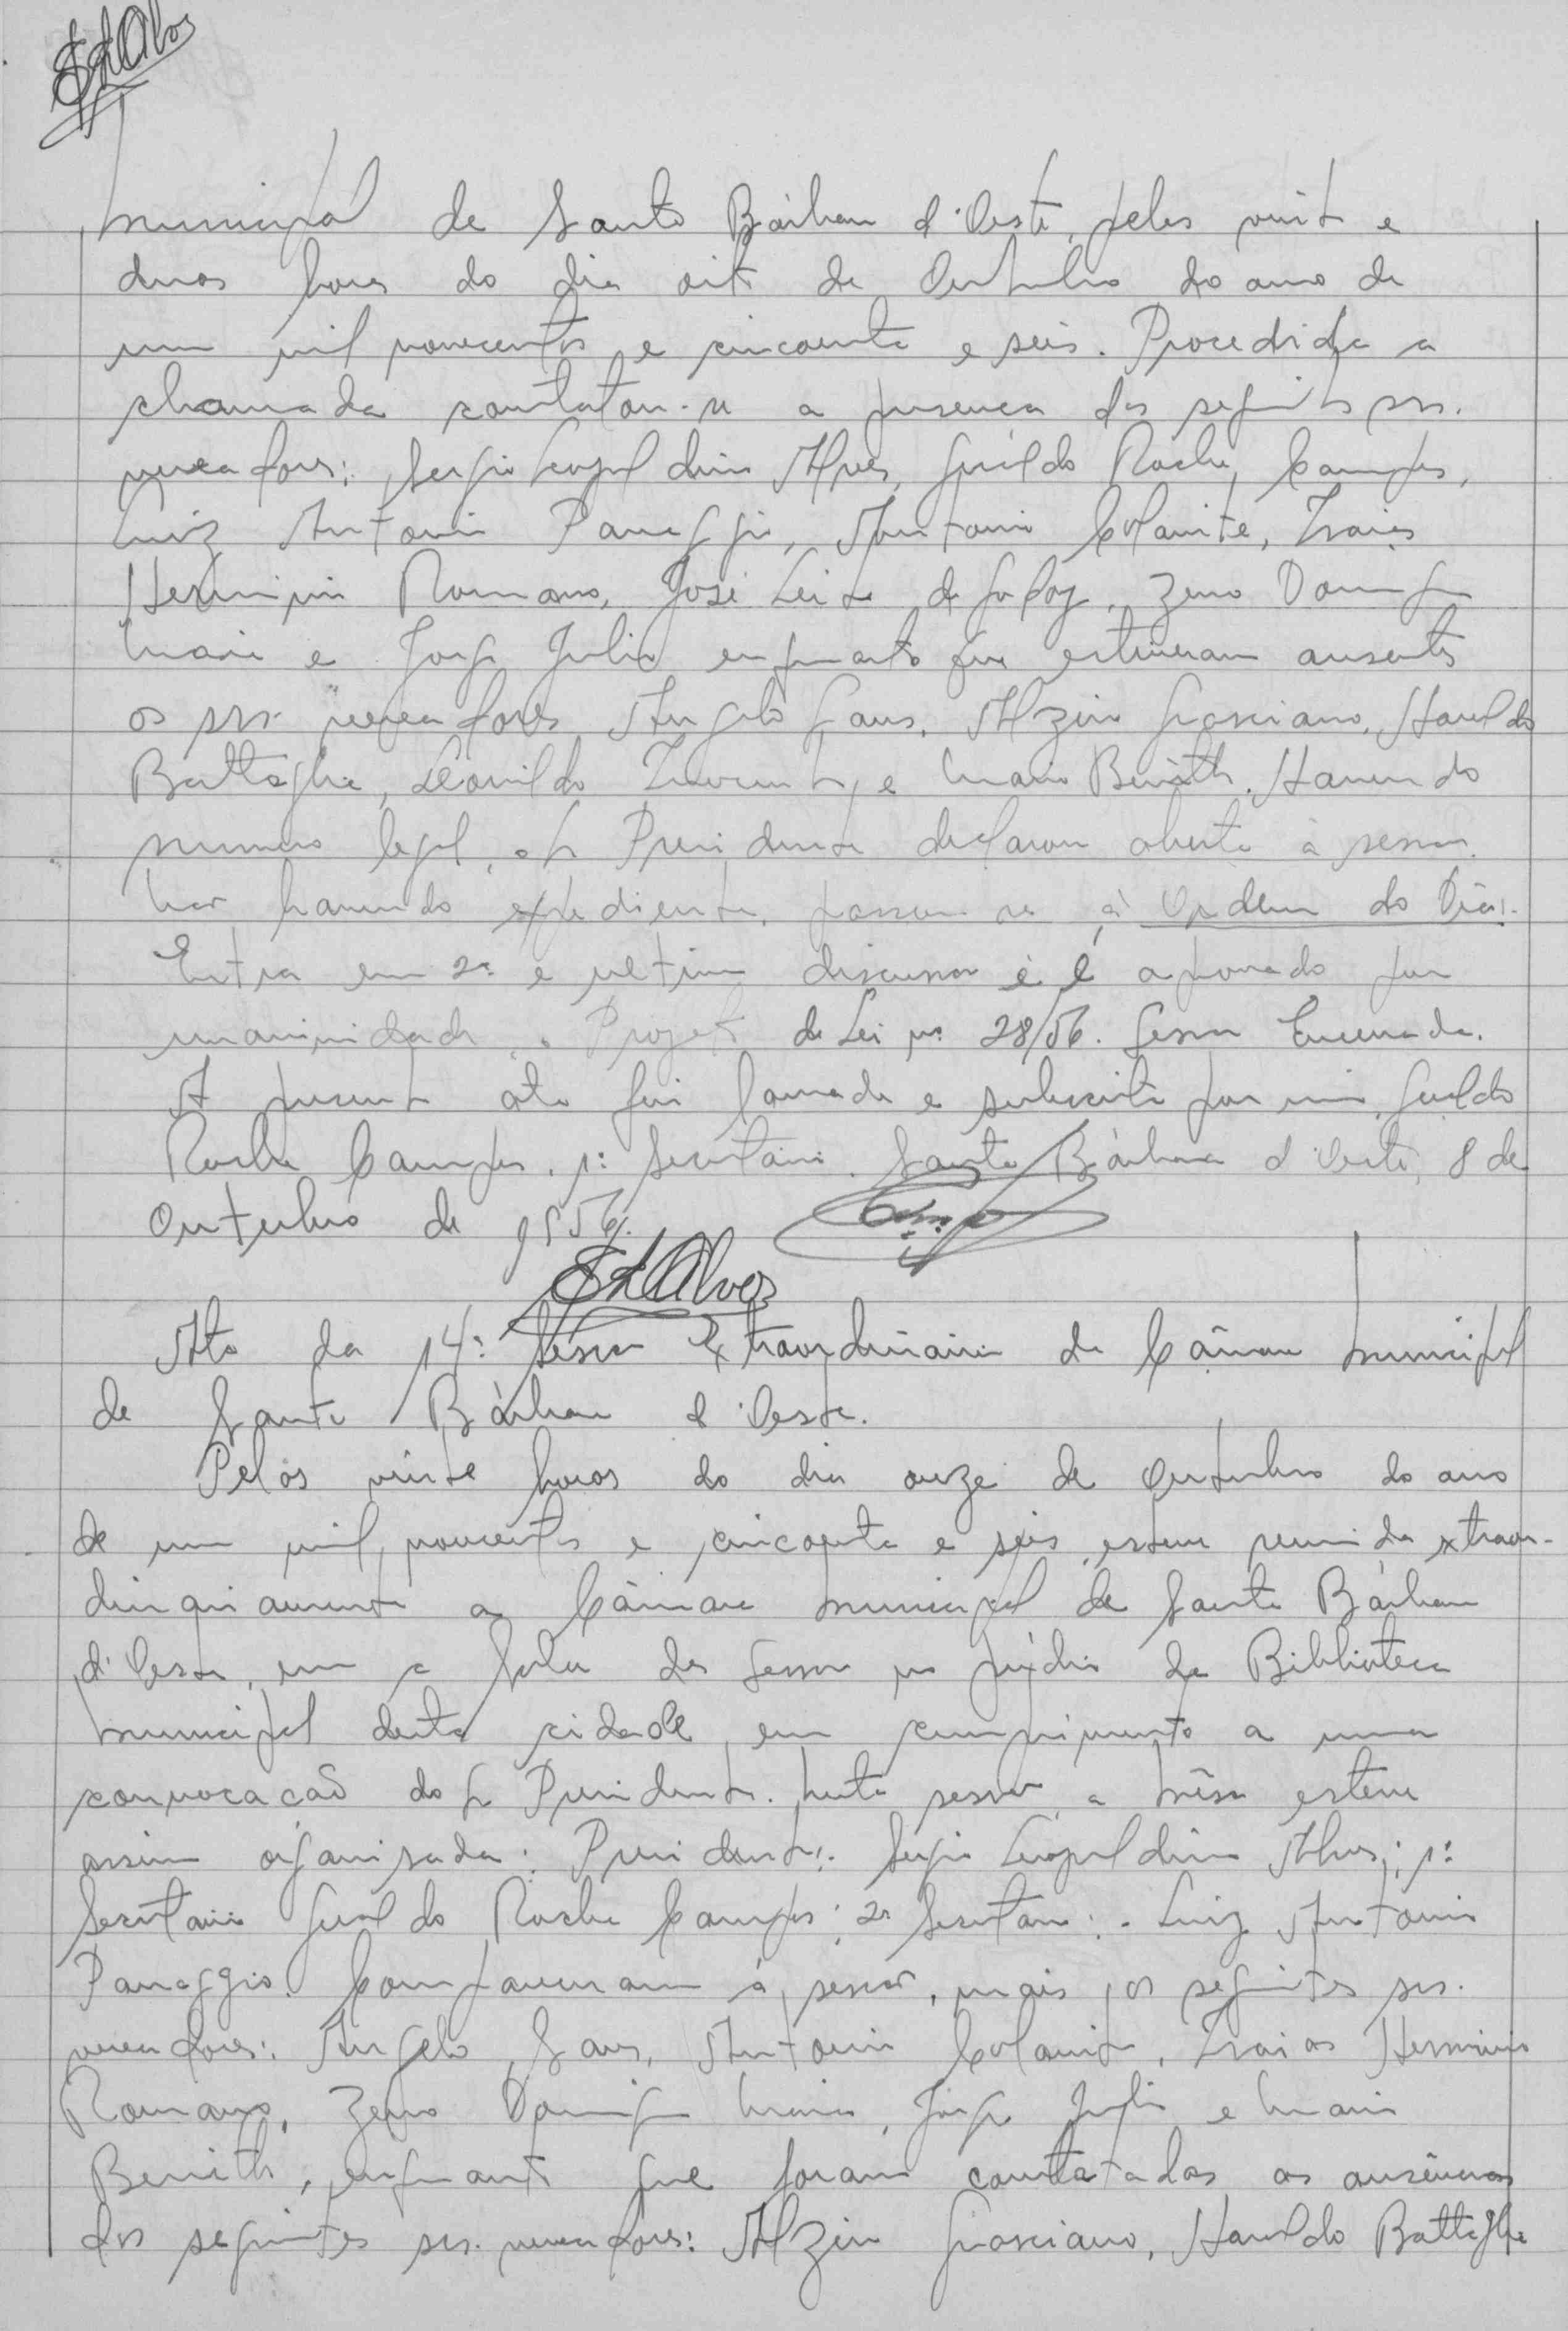 SLAlves
Municipal de Santa Bárbara d'Oeste, pelas vinte e
duas horas do dia oito de Outubro do ano de
um mil novecentos e cincoenta e seis. Procedida a
chamada constatou-se a presença dos seguintes srs.
vereadores: Sergio Leopoldino Alves, Geraldo Rocha Campos,
Luiz Antonio Panaggio, Antonio Colanite, Izaias
Herminio Romano, José Leite de Godoy, Zeno Domingos
Maia e Jorge Julio enquanto que estiveram ausentes
os srs. vereadores Angelo Gans, Alziro Grasciano, Haroldo
Battaglia, Leonildo e Mario Benith. Havendo
numero legal, o Sr Presidente declarou aberta a sessão.
Não havendo expediente, passou-se à Ordem do Dia:-
Entra em 2ª e ultima discussão e é aprovado por
unanimidade o Projeto de Lei nº 28/56. Sessão Encerrada.
A presente ata foi lavrada e subscrita por mim, Geraldo
Rocha Campos, 1º Secretario. Santa Bárbara d'Oeste, 8 de
Outubro de 1956.
SLAlves
Ata da 14ª Sessão Extraordinária da Câmara Municipal
de Santa Bárbara d'Oeste.
Pelas vinte horas do dia onze de Outubro do ano
de um mil novecentos e cincoenta e seis, esteve reunida extraor-
dinariamente a Câmara Municipal de Santa Bárbara
d'Oeste, em a Sala das Sessões no prédio da Biblioteca
Municipal desta cidade em cumprimento a uma
convocação do Sr Presidente. Nesta sessão a mêsa esteve
assim organisada: Presidente:- Sergio Leopoldino Alves; 1º
Secretario Geraldo Rocha Campos; 2º Secretario:- Luiz Antonio
Panaggio. Compareceram à sessão, mais os seguintes srs.
vereadores: Angelo Gans, Antonio Colanite, Izaias Herminio
Romano, Zeno Domingos Maia, Jorge Julio e Mario
Benith, enquanto que foram constatadas as ausências
dos seguintes srs. vereadores: Alziro Grasciano, Haroldo Battaglia